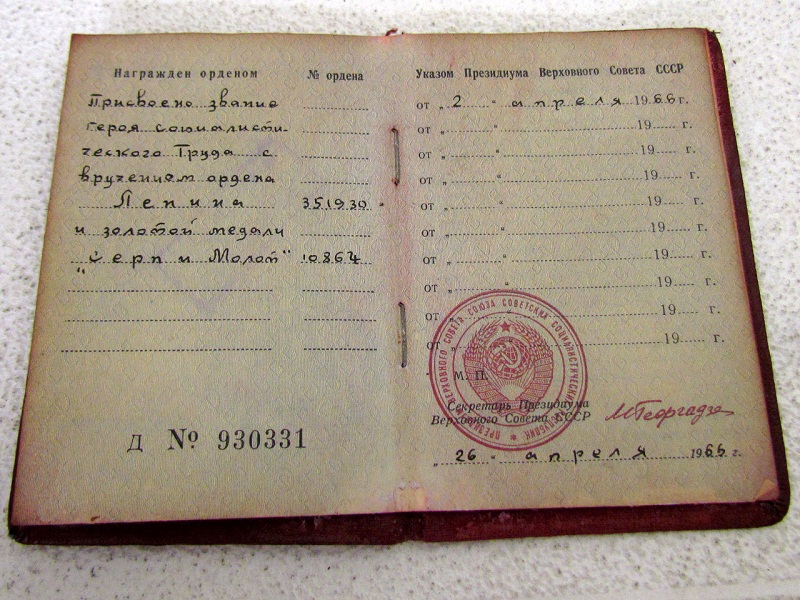 Награжден орденом
№ ордена
Присвоено звание
Героя социалисти-
ческого Труда с
вручением ордена
Ленина 351930
и золотой медали
"Серп и Молот" 10864
Д № 930331
Указом Президиума Верховного Совета СССР
от „2" апреля 1966 г.
от „ " 19 г.
от „ " 19 г.
от „ " 19 г.
от „ " 19 г.
от „ " 19 г.
от „ " 19 г.
от „ " 19 г.
от „ " 19 г.
от „ " 19 г.
М. П.
Секретарь Президиума
Верховного Совета СССР
МГеоргадзе
„26" апреля 1966 г.
ВЕРХОВНОГО СОВЕТА СОЮЗА СОВЕТСКИХ СОЦИАЛИСТИЧЕСКИХ